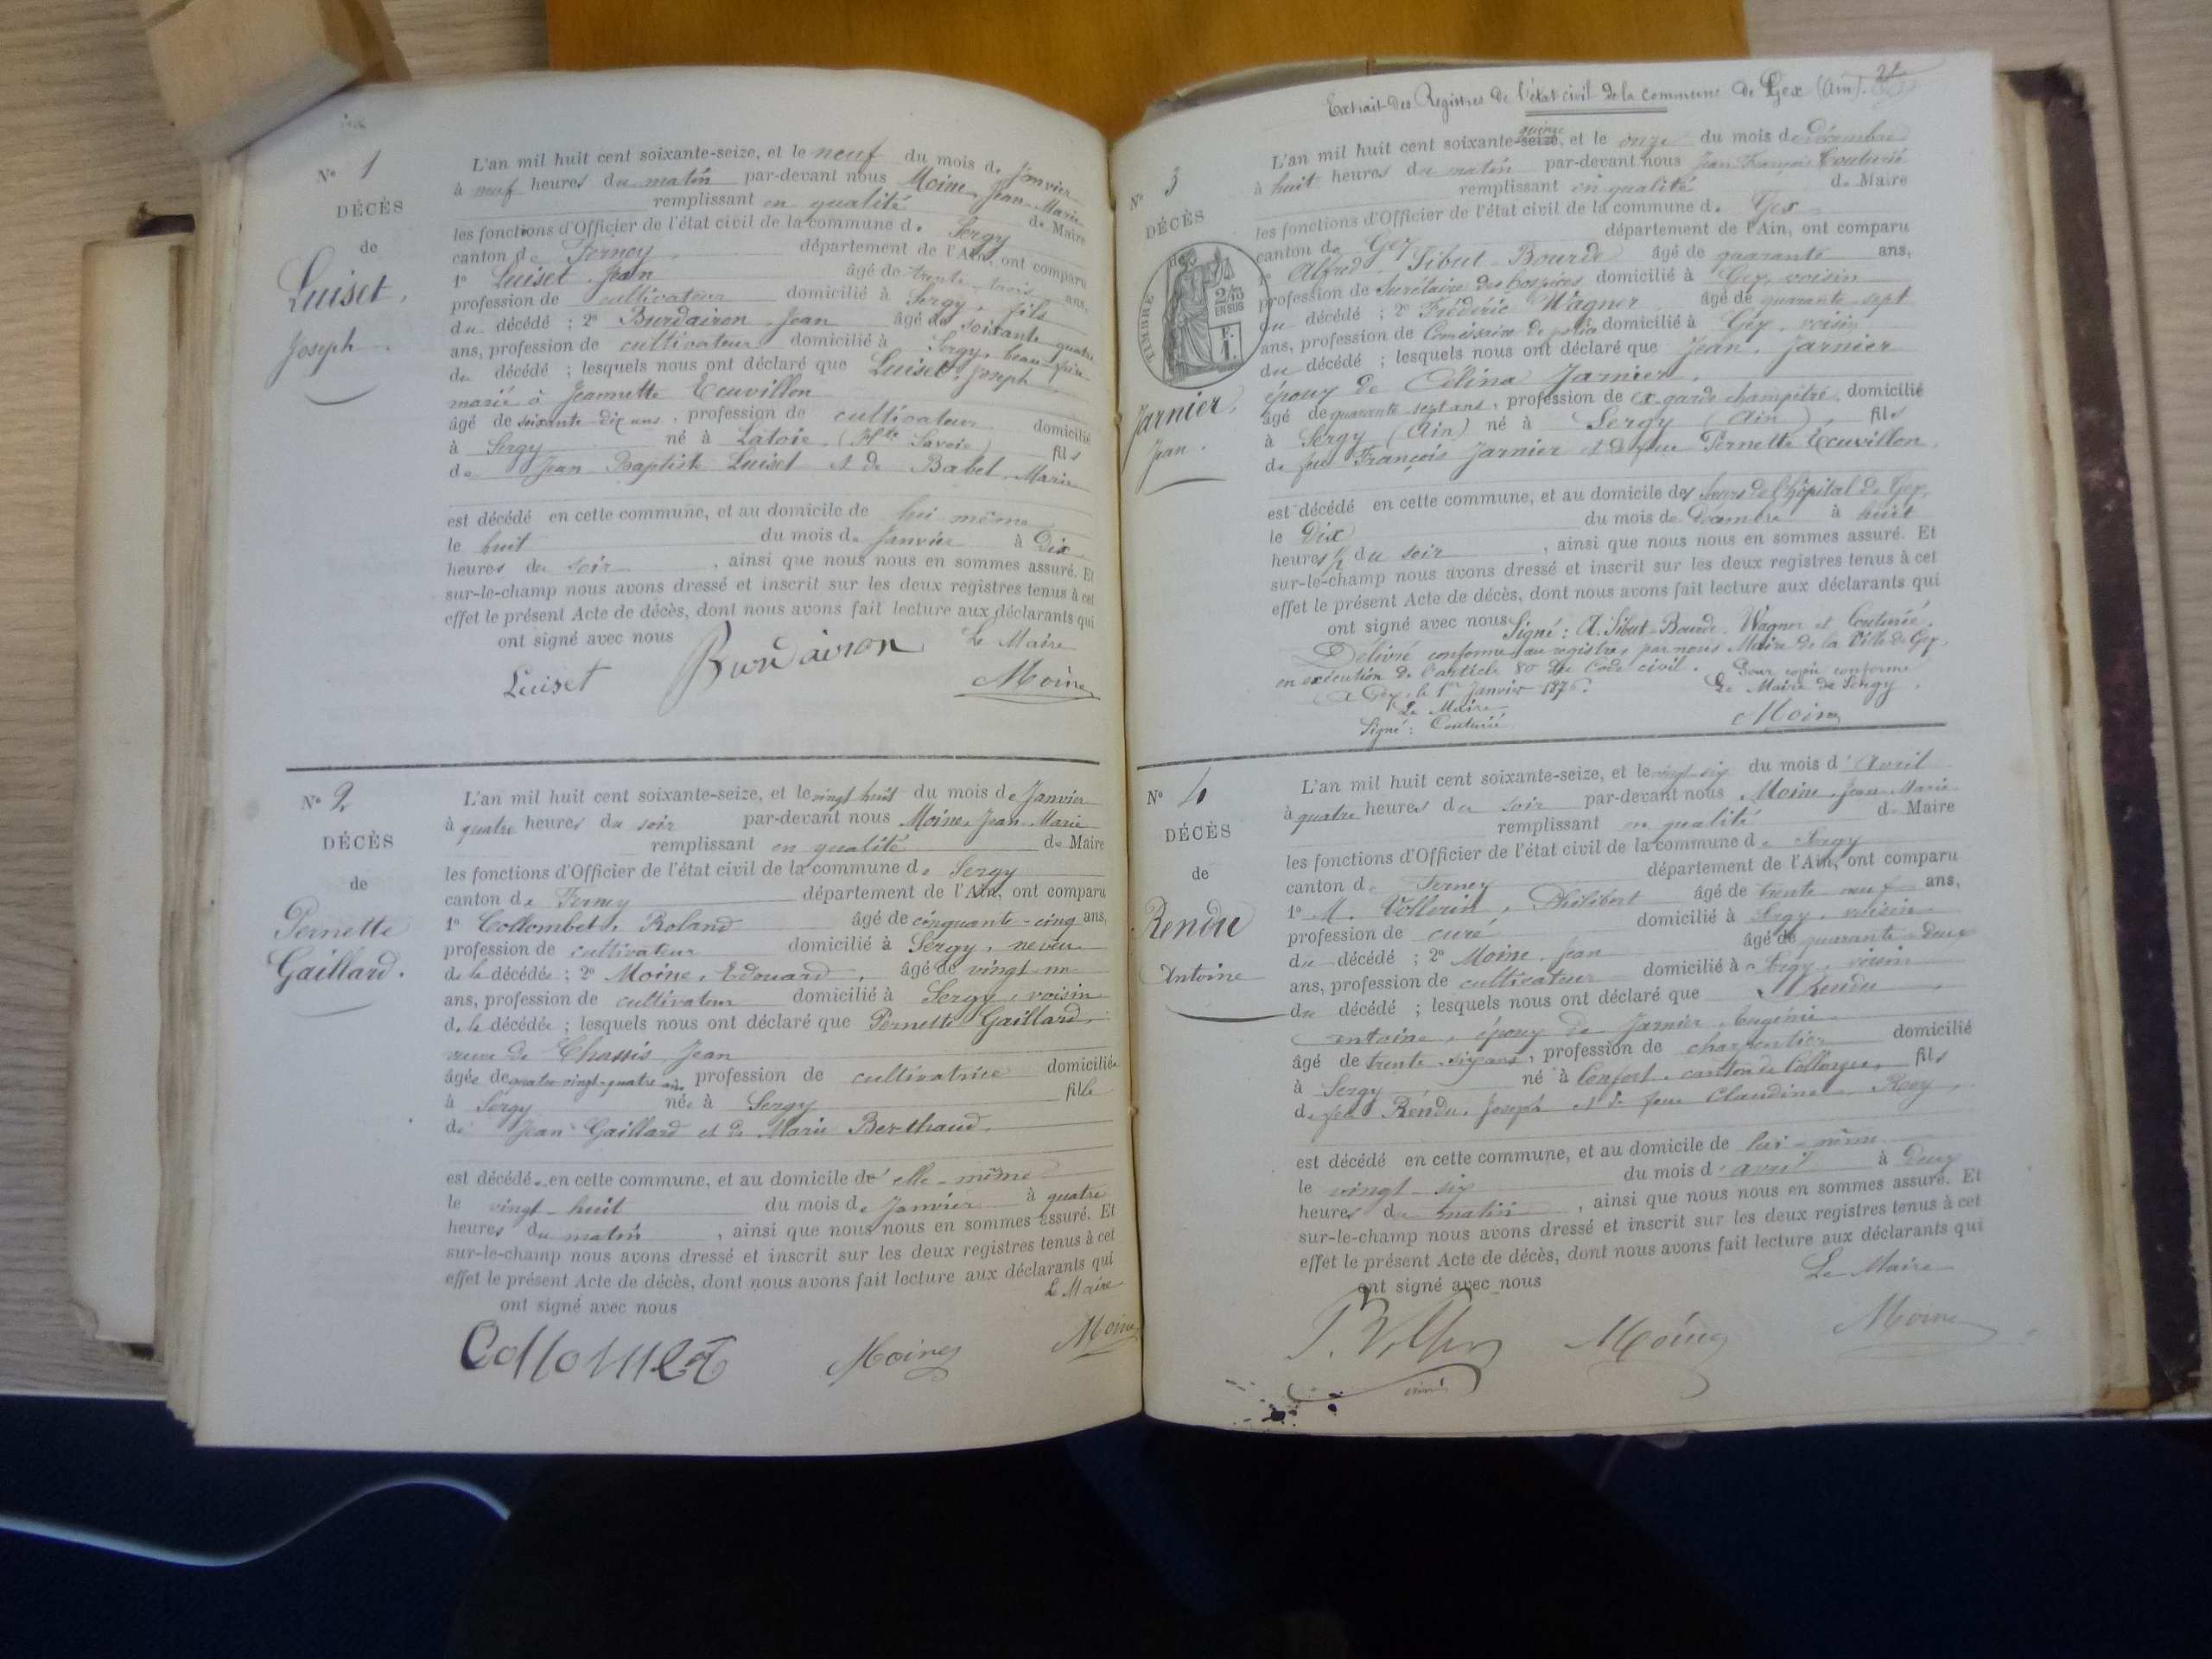 N° 1
DÉCÈS
de
Luiset,
Joseph.
L'an mil huit cent soixante-seize, et le neuf du mois de Janvier
à neuf heures du matin par-devant nous Moine, Jean-Marie
remplissant en qualité de Maire
les fonctions d'Officier de l'état civil de la commune de Sergy
canton de Ferney département de l'Ain, ont comparu
1° Luiset Jean âgé de trente-trois ans,
profession de cultivateur domicilié à Sergy, fils
du décédé ; 2° Burdairon Jean âgé de soixante-quatre
ans, profession de cultivateur domicilié à Sergy, beau-frère
du décédé ; lesquels nous ont déclaré que Luiset, Joseph
marié à Jeannette Ecuvillon
âgé de soixante-dix ans, profession de cultivateur domicilié
à Sergy né à Latoie, (Hte Savoie) fils
de Jean Baptiste Luiset et de Babel, Marie
est décédé en cette commune, et au domicile de lui même
le huit du mois de Janvier à Dix
heures du soir, ainsi que nous nous en sommes assuré. Et
sur-le-champ nous avons dressé et inscrit sur les deux registres tenus à cet
effet le présent Acte de décès, dont nous avons fait lecture aux déclarants qui
ont signé avec nous
Le Maire
Luiset Burdairon Moine
N° 2
DÉCÈS
de
Pernette
Gaillard.
L'an mil huit cent soixante-seize, et le vingt huit du mois de Janvier
à quatre heures du soir par-devant nous Moine, Jean Marie
remplissant en qualité de Maire
les fonctions d'Officier de l'état civil de la commune de Sergy
canton de Ferney département de l'Ain, ont comparu
1° Collombet, Roland âgé de cinquante-cinq ans,
profession de cultivateur domicilié à Sergy, neveu
de la décédée ; 2° Moine, Edouard, âgé de vingt-un
ans, profession de cultivateur domicilié à Sergy, voisin
de la décédée ; lesquels nous ont déclaré que Pernette Gaillard,
veuve de Chassis, Jean
âgée de quatre-vingt-quatre ans profession de cultivatrice domiciliée
à Sergy née à Sergy fille
de Jean Gaillard et de Marie Berthaud.
est décédée en cette commune, et au domicile d'elle-même
le vingt-huit du mois de Janvier à quatre
heures du matin, ainsi que nous nous en sommes assuré. Et
sur-le-champ nous avons dressé et inscrit sur les deux registres tenus à cet
effet le présent Acte de décès, dont nous avons fait lecture aux déclarants qui
ont signé avec nous Le Maire
Collombet Moine Moine
Extrait des Registres de l'état civil de la commune de Gex (Ain).
N° 3
DÉCÈS
de
TIMBRE
2/10
EN SUS
F.
1.
Jarnier,
Jean.
quinze
L'an mil huit cent soixante-seize, et le onze du mois de Décembre
à huit heures du matin par-devant nous Jean François Couturié
remplissant en qualité de Maire
les fonctions d'Officier de l'état civil de la commune de Gex
canton de Gex département de l'Ain, ont comparu
1° Alfred Sibut-Bourde âgé de quarante ans,
profession de Secrétaire des hospices domicilié à Gex, voisin
du décédé ; 2° Frédéric Wagner âgé de quarante-sept
ans, profession de Comissaire de police domicilié à Gex, voisin
du décédé ; lesquels nous ont déclaré que Jean, Jarnier
époux de Célina Jarnier,
âgé de quarante sept ans, profession de ex-garde champêtre, domicilié
à Sergy (Ain) né à Sergy (Ain), fils
de feu François Jarnier et de feue Pernette Ecuvillon.
est décédé en cette commune, et au domicile des soeurs de l'hôpital de Gex,
le Dix du mois de Décembre à huit
heures ½ du soir, ainsi que nous nous en sommes assuré. Et
sur-le-champ nous avons dressé et inscrit sur les deux registres tenus à cet
effet le présent Acte de décès, dont nous avons fait lecture aux déclarants qui
ont signé avec nous Signé : A. Sibut-Bourde, Wagner et Couturié.
Délivré conforme au registre, par nous Maire de la Ville de Gex,
en exécution de l'article 80 du Code civil. Pour copie conforme
A Gex, le 1er Janvier 1876. Le Maire de Sergy,
Le Maire,
Signé : Couturié Moine
N° 4
DÉCÈS
de
Rendu
Antoine
L'an mil huit cent soixante-seize, et le vingt-six du mois d'Avril
à quatre heures du soir par-devant nous Moine, Jean-Marie
remplissant en qualité de Maire
les fonctions d'Officier de l'état civil de la commune de Sergy
canton de Ferney département de l'Ain, ont comparu
1° M. Vollerin, Philibert âgé de trente-neuf ans,
profession de curé domicilié à Sergy, voisin
du décédé ; 2° Moine, Jean âgé de quarante-deux
ans, profession de cultivateur domicilié à Sergy, voisin
du décédé ; lesquels nous ont déclaré que Rendu,
antoine, époux de Jarnier, Eugénie
âgé de trente-six ans, profession de charpentier domicilié
à Sergy né à Confort, canton de Collonges, fils
de feu Rendu, Joseph et de feue Claudine Roy,
est décédé en cette commune, et au domicile de lui-même
le vingt-six du mois d'avril à Deux
heures du matin, ainsi que nous nous en sommes assuré. Et
sur-le-champ nous avons dressé et inscrit sur les deux registres tenus à cet
effet le présent Acte de décès, dont nous avons fait lecture aux déclarants qui
ont signé avec nous Le Maire
Moine Moine
curé